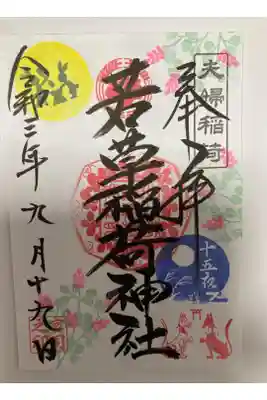 夫婦稲荷
奉拝
十五夜
若草稲荷神社
令和二年九月十九日